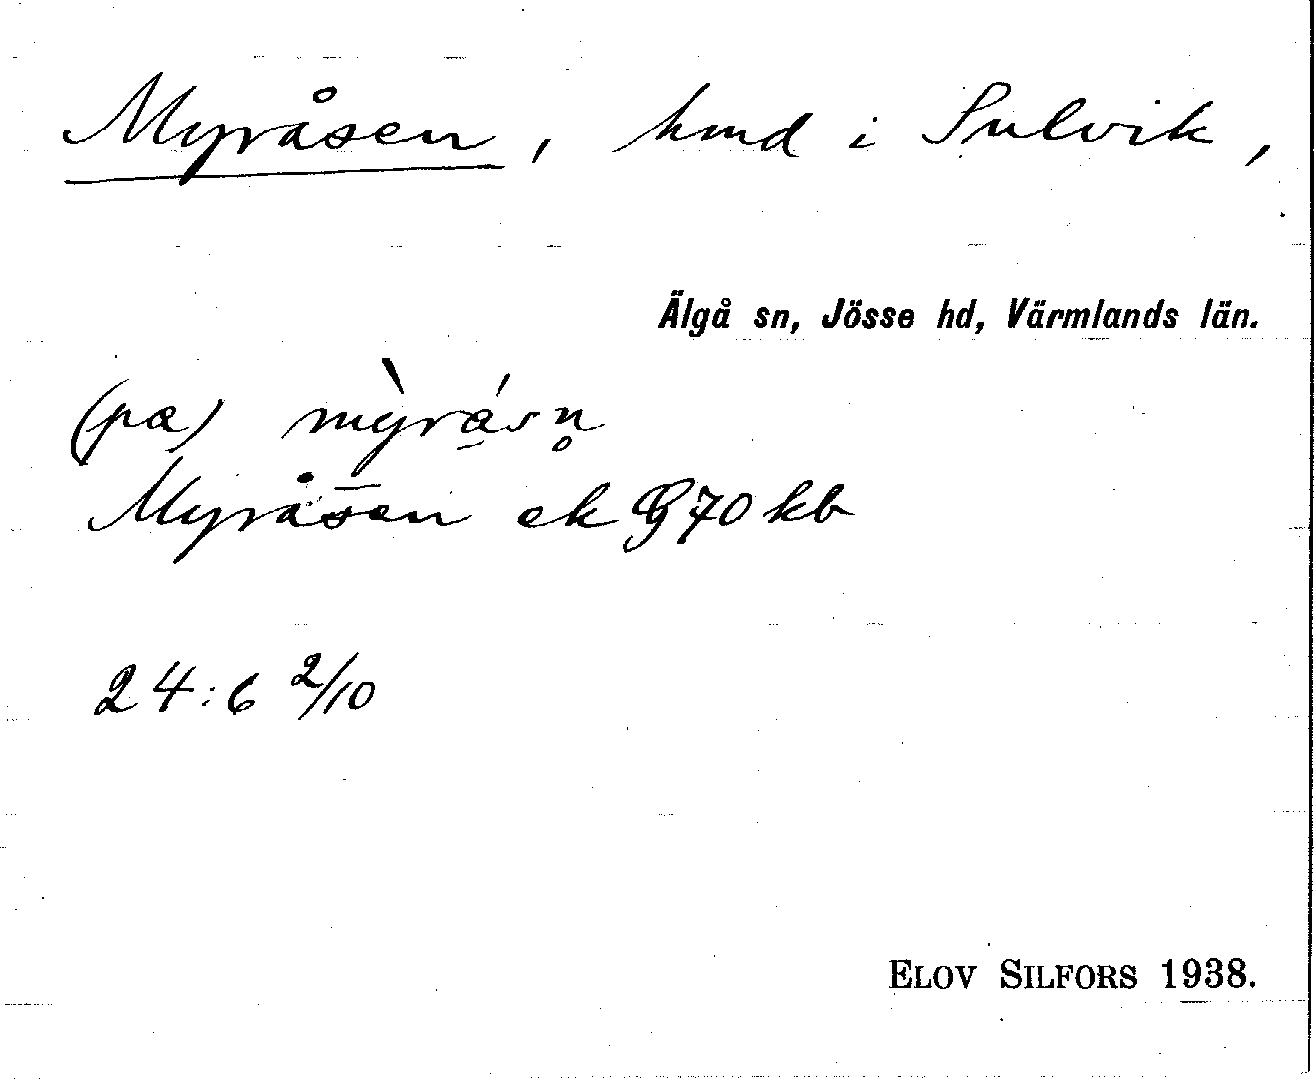 Myråsen, hmd i Sulvik,
Älgå sn, Jösse hd, Värmlands län.
(pœ) my̍råsn̥
Myråsen ek G 70 kb
24:6 2/10
ELOV SILFORS 1938.